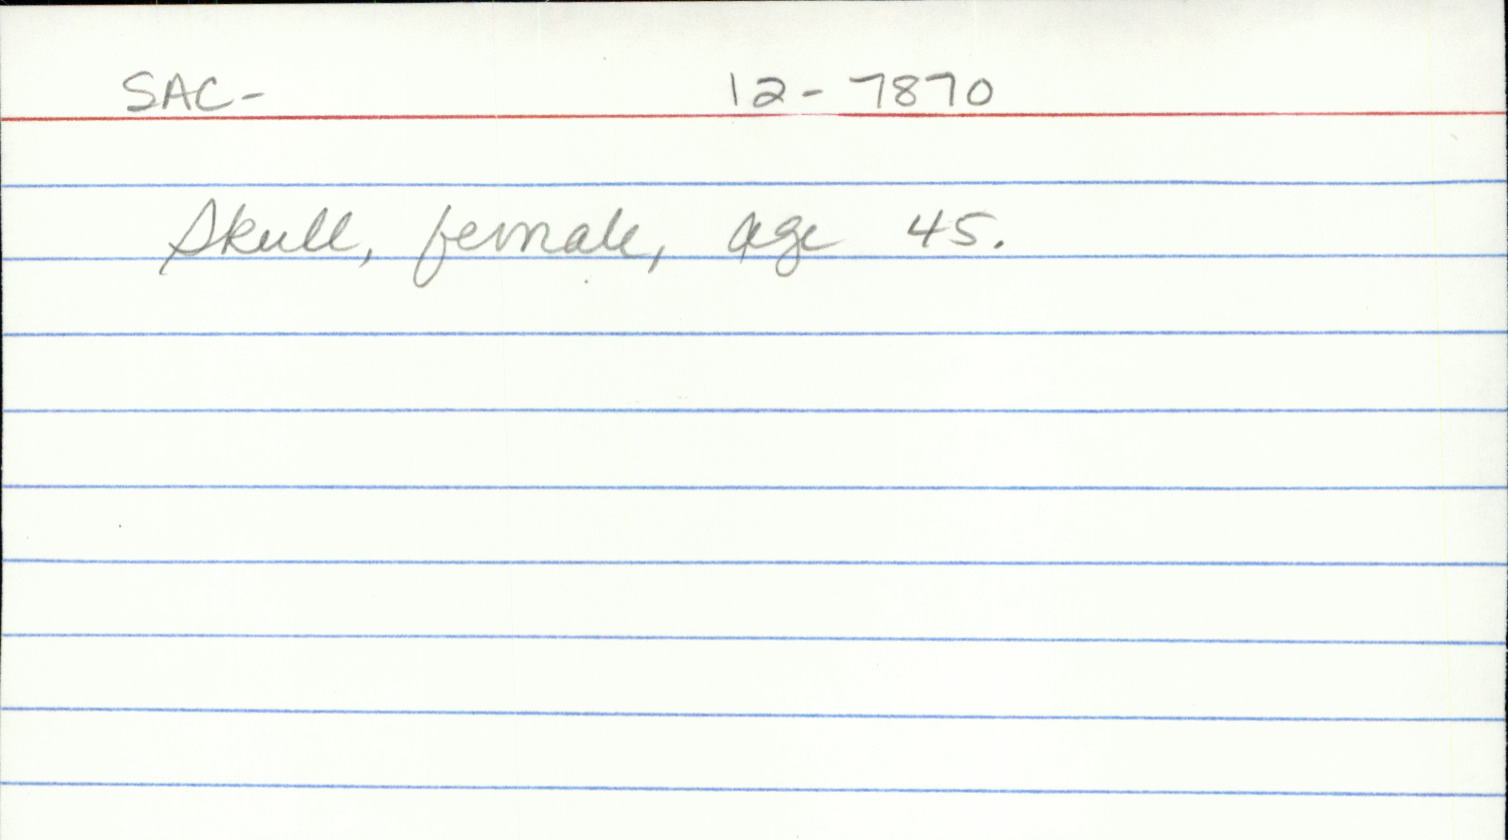 SAC- 12-7870
Skull, female, age 45.